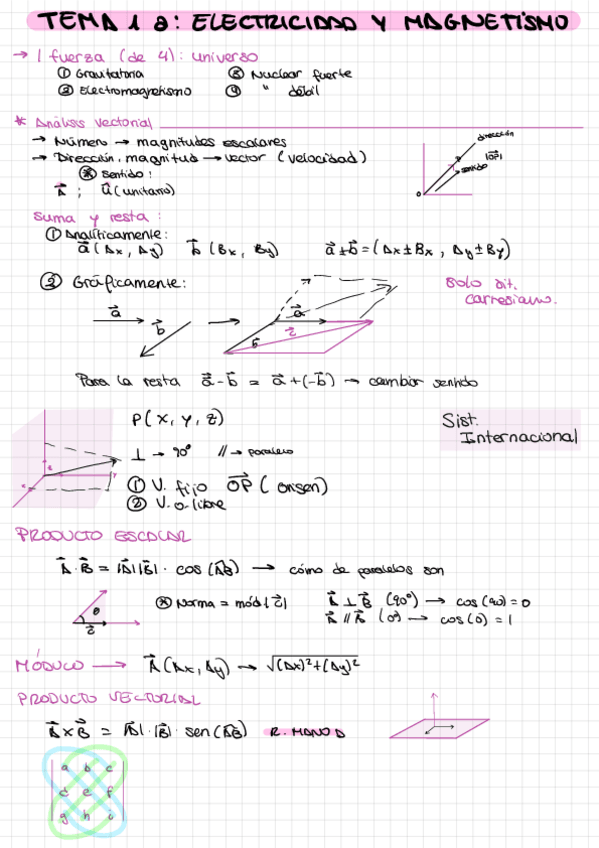 TEMA 1 a: ELECTRICIDAD Y MAGNETISMO
→ 1 fuerza (de 4): universo
① Gravitatoria ③ Nuclear fuerte
② Electromagnetismo ④ " débil
* Análisis vectorial
→ Número → magnitudes escalares
→ Dirección, magnitud → vector (velocidad)
* Sentido:
A⃗ ; u⃗ (unitario)
dirección
|OP⃗|
sentido
O
Suma y resta:
① Analíticamente:
a⃗ (Ax, Ay) b⃗ (Bx, By) a⃗±b⃗ = (Ax±Bx, Ay±By)
② Gráficamente:
solo sit.
cartesiano.
a⃗ b⃗ → a⃗ b⃗ r⃗
Para la resta a⃗-b⃗ = a⃗+(-b⃗) → cambiar sentido
P(X, Y, Z)
Sist.
Internacional
⊥ → 90° // → paralelo
① V. fijo OP⃗ (origen)
② V. libre
PRODUCTO ESCALAR
A⃗·B⃗ = |A⃗||B⃗|·cos(AB) → cómo de paralelos son
θ
r⃗
* Norma = mód |r⃗|
A⃗ ⊥ B⃗ (90°) → cos(90)=0
A⃗ // B⃗ (0°) → cos(0)=1
MÓDULO → A⃗ (Ax, Ay) → √(Ax)²+(Ay)²
PRODUCTO VECTORIAL
A⃗×B⃗ = |A⃗|·|B⃗|·sen(AB) R. MANO D
a b c
d e f
g h i